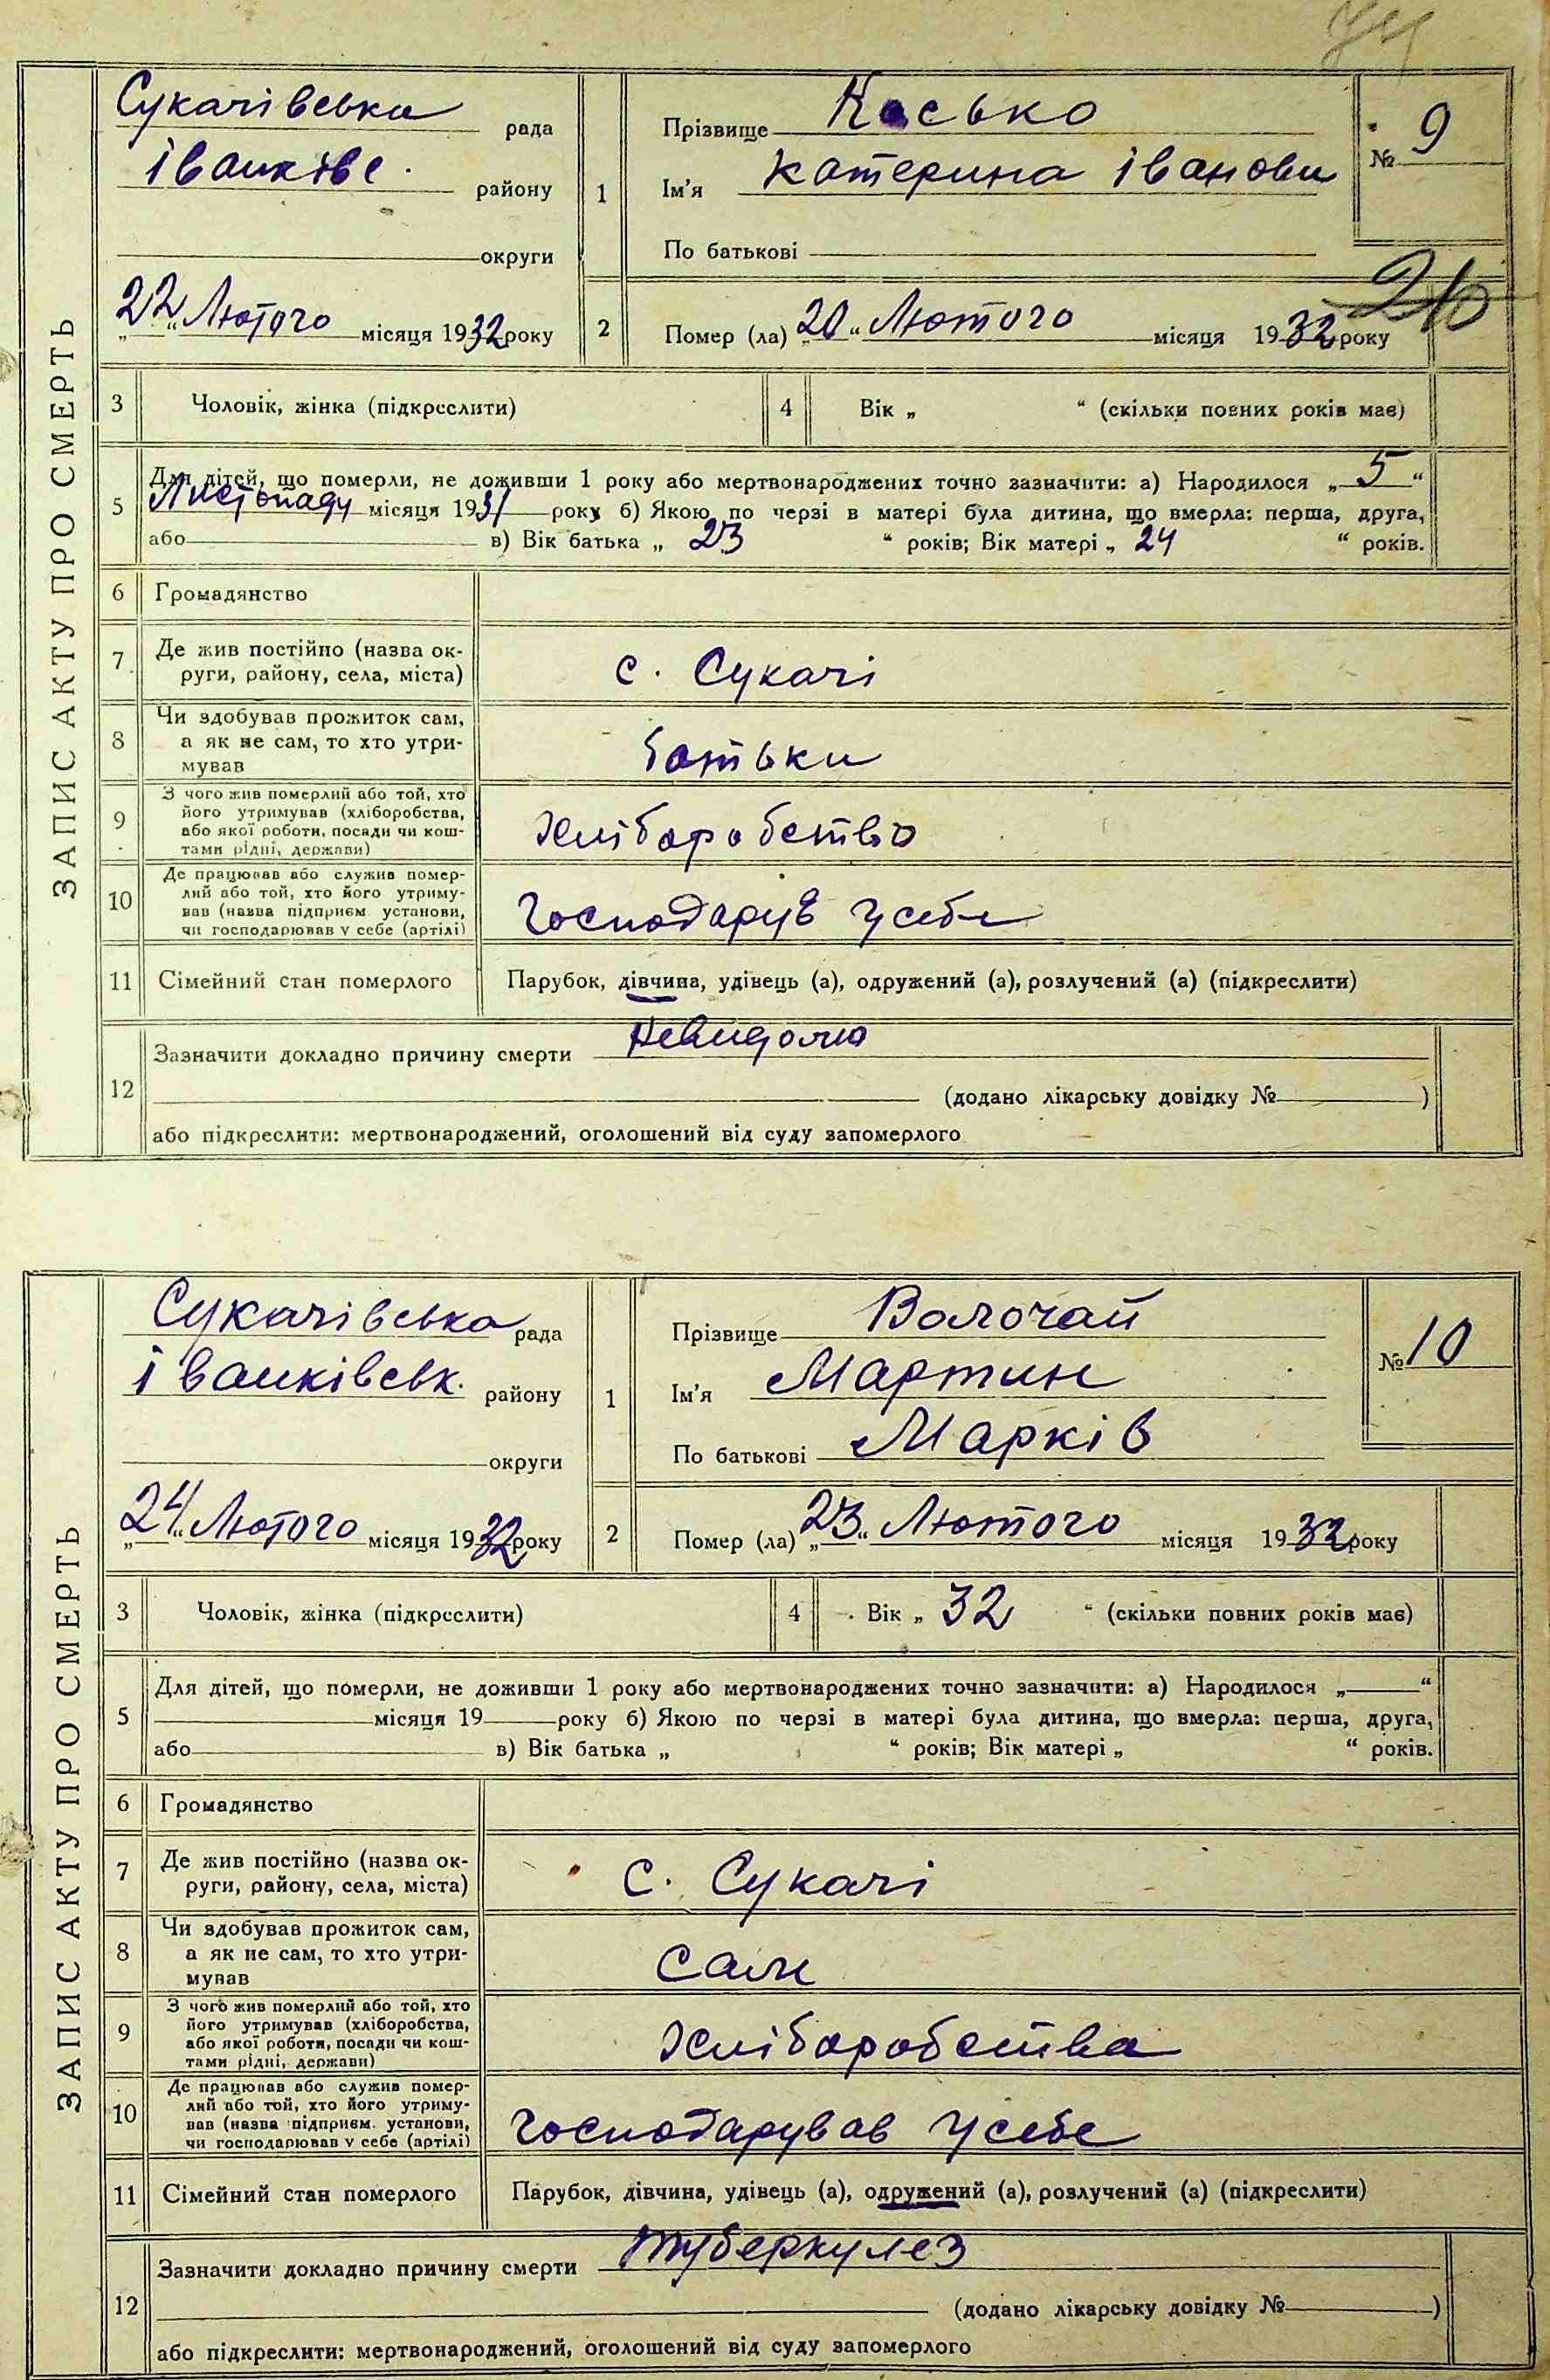 ЗАПИС АКТУ ПРО СМЕРТЬ
Сукачівська рада
Іванківс. району
округи
22 „ Лютого місяця 1932 року
1
Прізвище Касько
Ім'я Катерина Іванови
По батькові
№ 9
2
Помер (ла) „20“ Лютого місяця 1932 року
3
Чоловік, жінка (підкреслити)
4
Вік „ “ (скільки повних років має)
5
Для дітей, що померли, не доживши 1 року або мертвонароджених точно зазначити: а) Народилося „5“
Листопаду місяця 1931 року б) Якою по черзі в матері була дитина, що вмерла: перша, друга,
або в) Вік батька „ 23 “ років; Вік матері „ 24 “ років.
6
Громадянство
7
Де жив постійно (назва ок-
руги, району, села, міста)
с. Сукачі
8
Чи здобував прожиток сам,
а як не сам, то хто утри-
мував
батьки
9
З чого жив померлий або той, хто
його утримував (хліборобства,
або якої роботи, посади чи кош-
тами рідні, держави)
Хліборобство
10
Де працював або служив помер-
лий або той, хто його утриму-
вав (назва підприєм. установи,
чи господарював у себе (артілі)
Господарув у себе
11
Сімейний стан померлого
Парубок, дівчина, удівець (а), одружений (а), розлучений (а) (підкреслити)
12
Зазначити докладно причину смерти Невидома
(додано лікарську довідку № )
або підкреслити: мертвонароджений, оголошений від суду запомерлого
ЗАПИС АКТУ ПРО СМЕРТЬ
Сукачівська рада
Іванківськ. району
округи
„24“ Лютого місяця 1932 року
1
Прізвище Волочай
Ім'я Мартин
По батькові Марків
№ 10
2
Помер (ла) „23“ Лютого місяця 1932 року
3
Чоловік, жінка (підкреслити)
4
Вік „ 32 “ (скільки повних років має)
5
Для дітей, що померли, не доживши 1 року або мертвонароджених точно зазначити: а) Народилося „ “
місяця 19 року б) Якою по черзі в матері була дитина, що вмерла: перша, друга,
або в) Вік батька „ “ років; Вік матері „ “ років.
6
Громадянство
7
Де жив постійно (назва ок-
руги, району, села, міста)
с. Сукачі
8
Чи здобував прожиток сам,
а як не сам, то хто утри-
мував
Сам
9
З чого жив померлий або той, хто
його утримував (хліборобства,
або якої роботи, посади чи кош-
тами рідні, держави)
Хліборобства
10
Де працював або служив помер-
лий або той, хто його утриму-
вав (назва підприєм. установи,
чи господарював у себе (артілі)
Господарував у себе
11
Сімейний стан померлого
Парубок, дівчина, удівець (а), одружений (а), розлучений (а) (підкреслити)
12
Зазначити докладно причину смерти туберкулез
(додано лікарську довідку № )
або підкреслити: мертвонароджений, оголошений від суду запомерлого